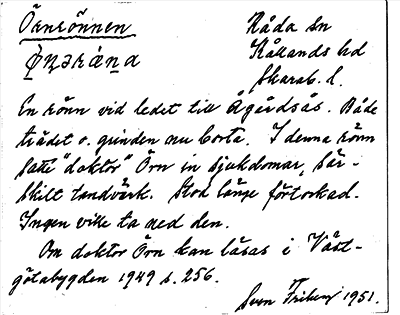 Örnrönnen
Råda sn
Kållands hd
Skarab. l.
En rönn vid ledet till Ågårdsås. Både
trädet o. grinden nu borta. I denna rönn
satte "doktor" Örn in sjukdomar, sär-
skilt tandvärk. Stod länge förtorkad.
Ingen ville ta ned den.
Om doktor Örn kan läsas i Väst-
götabygden 1949 s. 256.
Sven 1951.